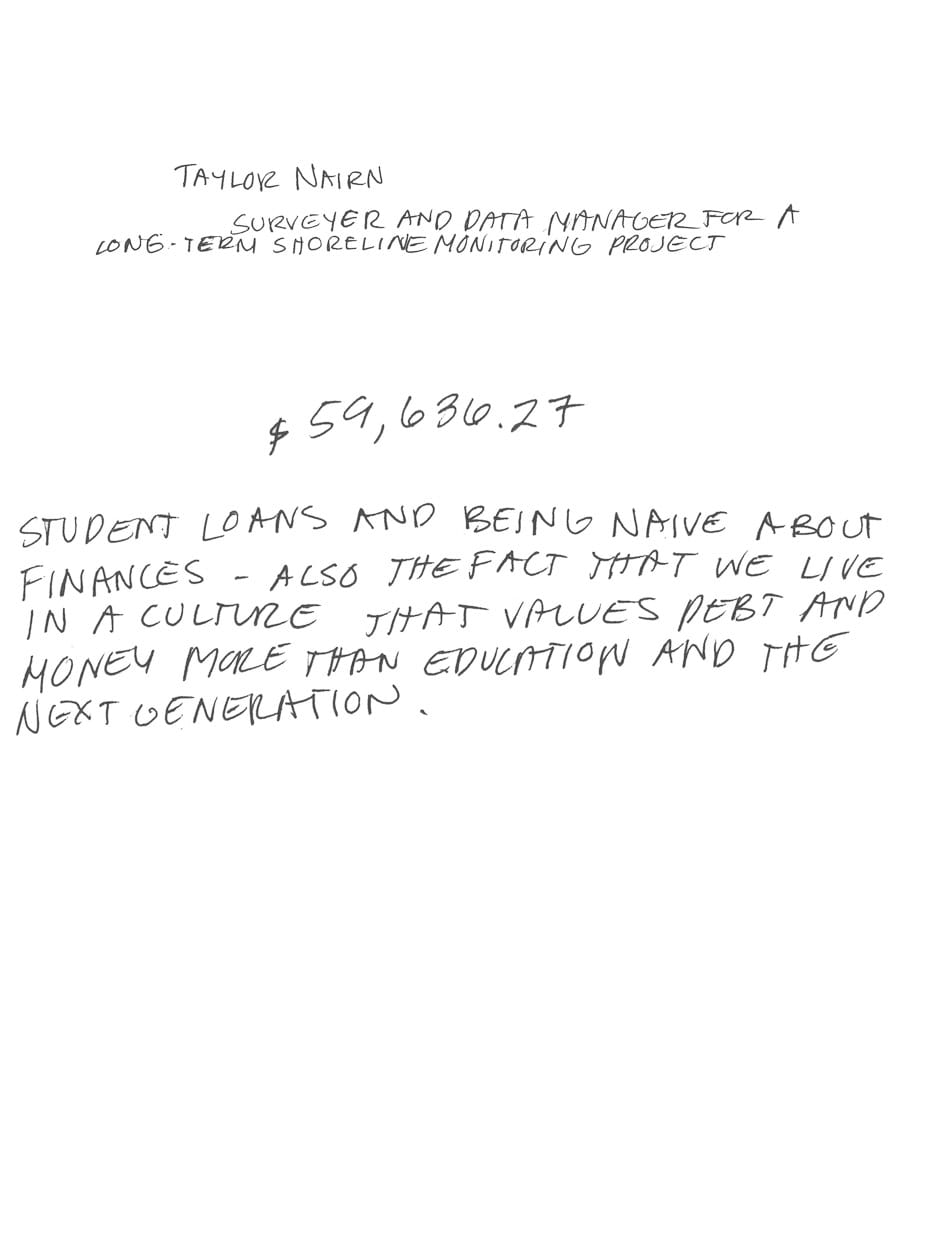 TAYLOR NAIRN
SURVEYER AND DATA MANAGER FOR A
LONG-TERM SHORELINE MONITORING PROJECT
$ 59,636.27
STUDENT LOANS AND BEING NAIVE ABOUT
FINANCES - ALSO THE FACT THAT WE LIVE
IN A CULTURE THAT VALUES DEBT AND
MONEY MORE THAN EDUCATION AND THE
NEXT GENERATION.